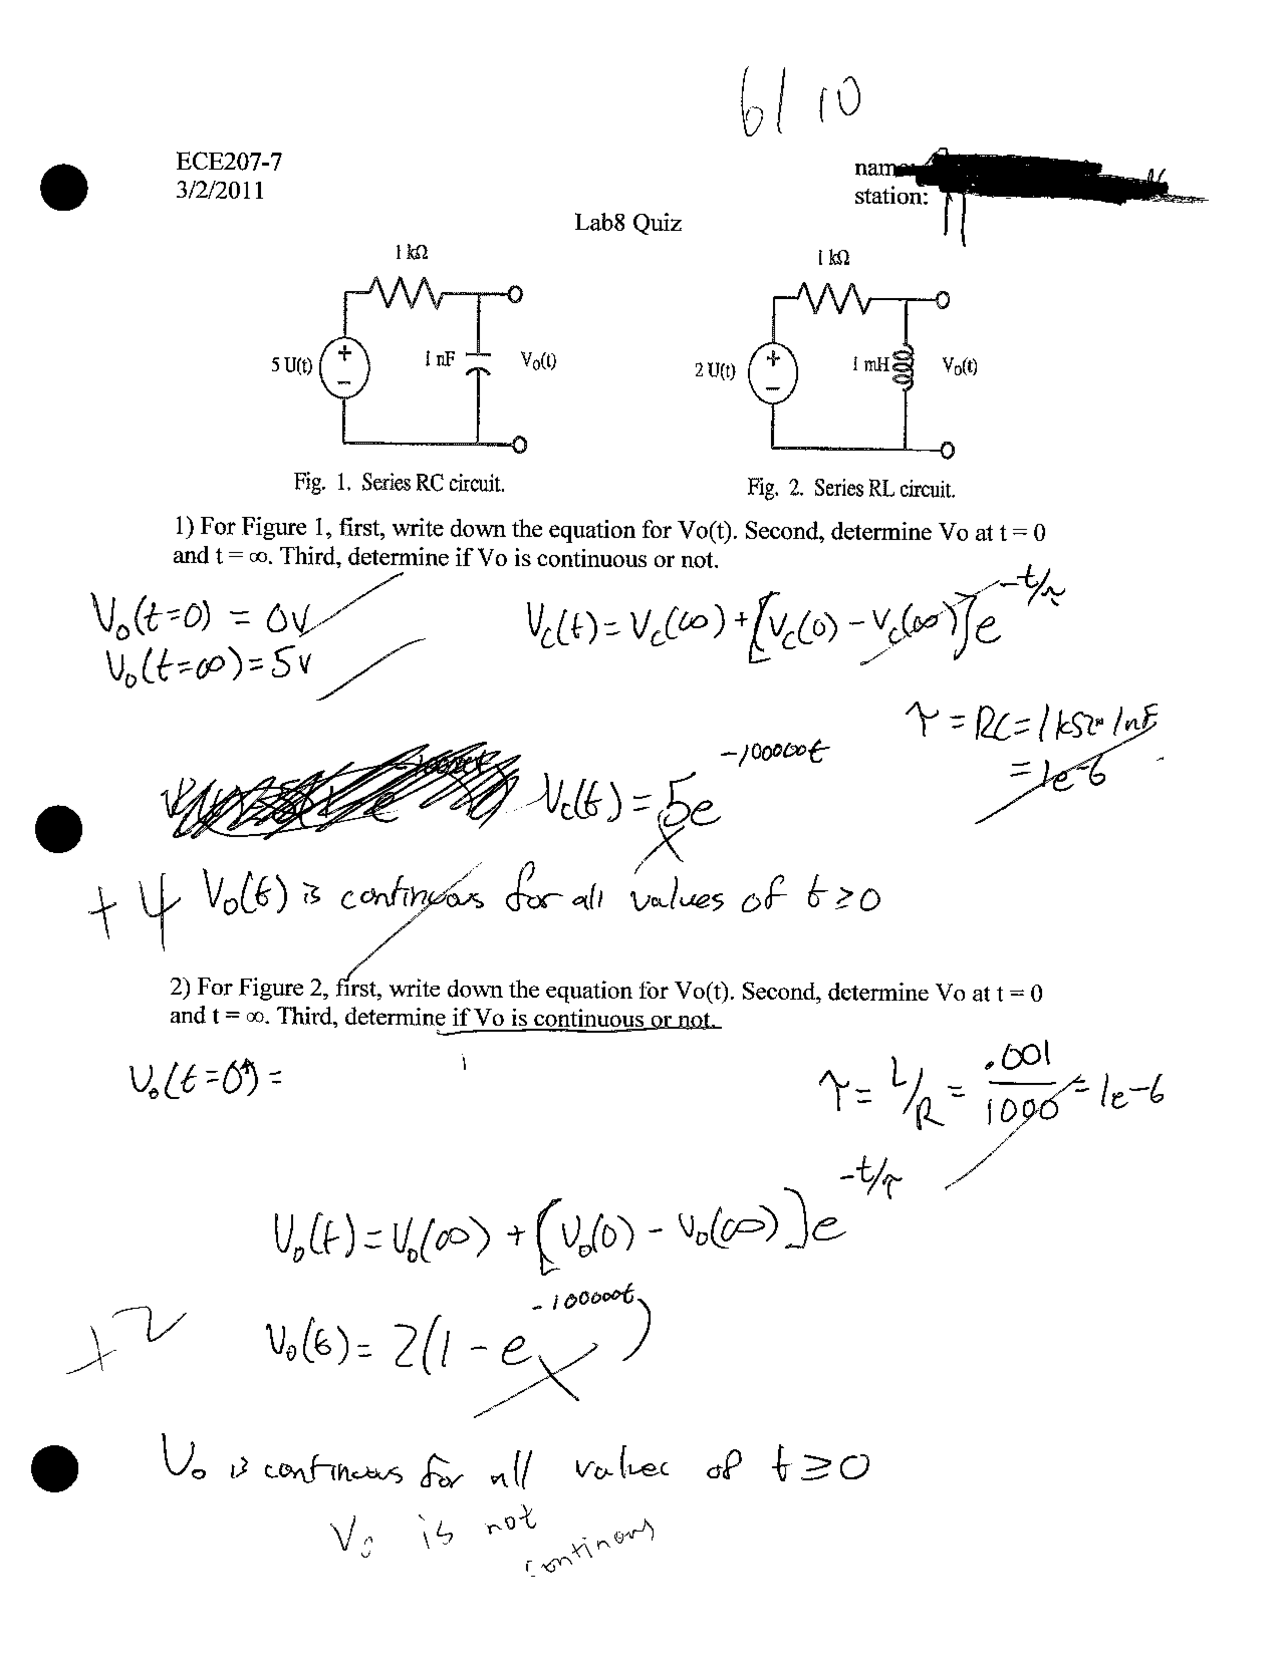 6/10
ECE207-7
3/2/2011
name:
station:
11
Lab8 Quiz
1 kΩ
5 U(t)
+
−
1 nF
Vo(t)
Fig. 1. Series RC circuit.
1 kΩ
2 U(t)
+
−
1 mH
Vo(t)
Fig. 2. Series RL circuit.
1) For Figure 1, first, write down the equation for Vo(t). Second, determine Vo at t = 0
and t = ∞. Third, determine if Vo is continuous or not.
Vo(t=0) = 0V
Vo(t=∞) = 5V
Vc(t) = Vc(∞) + [Vc(0) - Vc(∞)]e^-t/τ
τ = RC = 1kΩ * 1nF
= 1e-6
Vc(t) = 5e^-100000t
+4
Vo(t) is continuous for all values of t ≥ 0
2) For Figure 2, first, write down the equation for Vo(t). Second, determine Vo at t = 0
and t = ∞. Third, determine if Vo is continuous or not.
Vo(t=0⁺) =
τ = L/R = .001/1000 = 1e-6
Vo(t) = Vo(∞) + [Vo(0) - Vo(∞)]e^-t/τ
+2
Vo(t) = 2(1 - e^-100000t)
Vo is continuous for all values of t ≥ 0
Vo is not
continous